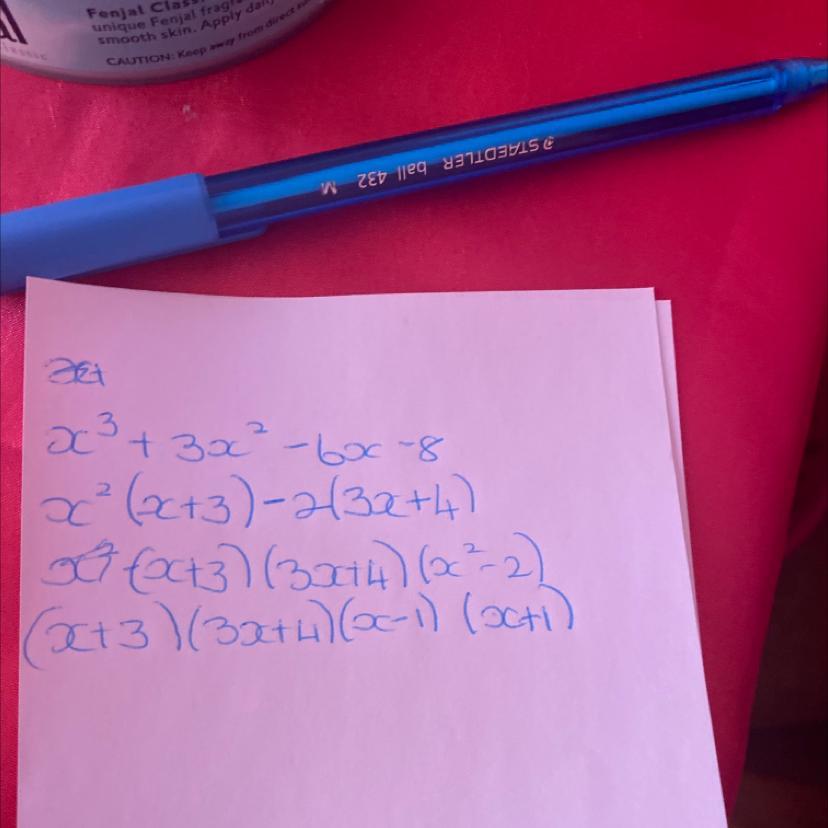 Fenjal Class
unique Fenjal fragr
smooth skin. Apply dail
CAUTION: Keep away from direct
STAEDTLER ball 432 M
x³ + 3x² - 6x - 8
x² (x+3) - 2(3x+4)
(x+3)(3x+4)(x²-2)
(x+3)(3x+4)(x-1) (x+1)